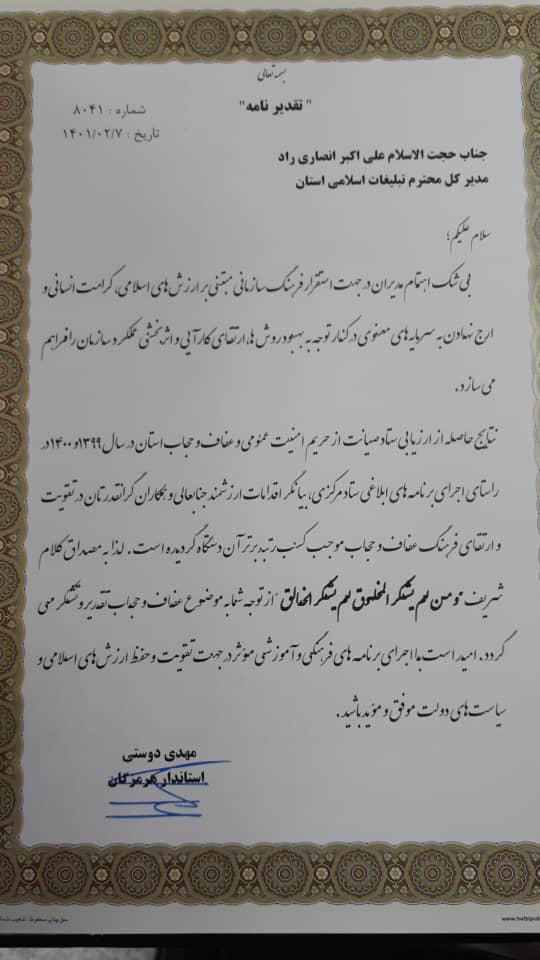 بسمه تعالی
"تقدیر نامه"
شماره : ۸۰۴۱
تاریخ : ۱۴۰۱/۰۲/۷
جناب حجت الاسلام علی اکبر انصاری راد
مدیر کل محترم تبلیغات اسلامی استان
سلام علیکم؛
بی شک اهتمام مدیران در جهت استقرار فرهنگ سازمانی مبتنی بر ارزش های اسلامی، کرامت انسانی و
ارج نهادن به سرمایه های معنوی در کنار توجه به بهبود روش ها، ارتقای کارآیی و اثربخشی عملکرد سازمان را فراهم
می سازد.
نتایج حاصله از ارزیابی ستاد صیانت از حریم امنیت عمومی و عفاف و حجاب استان در سال ۱۳۹۹ و ۱۴۰۰ در
راستای اجرای برنامه های ابلاغی ستاد مرکزی، بیانگر اقدامات ارزشمند جنابعالی و همکاران گرانقدرتان در تقویت
و ارتقای فرهنگ عفاف و حجاب موجب کسب رتبه برتر آن دستگاه گردیده است. لذا به مصداق کلام
شریف "و من لم یشکر المخلوق لم یشکر الخالق" از توجه شما به موضوع عفاف و حجاب تقدیر و تشکر می
گردد. امید است با اجرای برنامه های فرهنگی و آموزشی مؤثر در جهت تقویت و حفظ ارزش های اسلامی و
سیاست های دولت موفق و مؤید باشید.
مهدی دوستی
استاندار هرمزگان